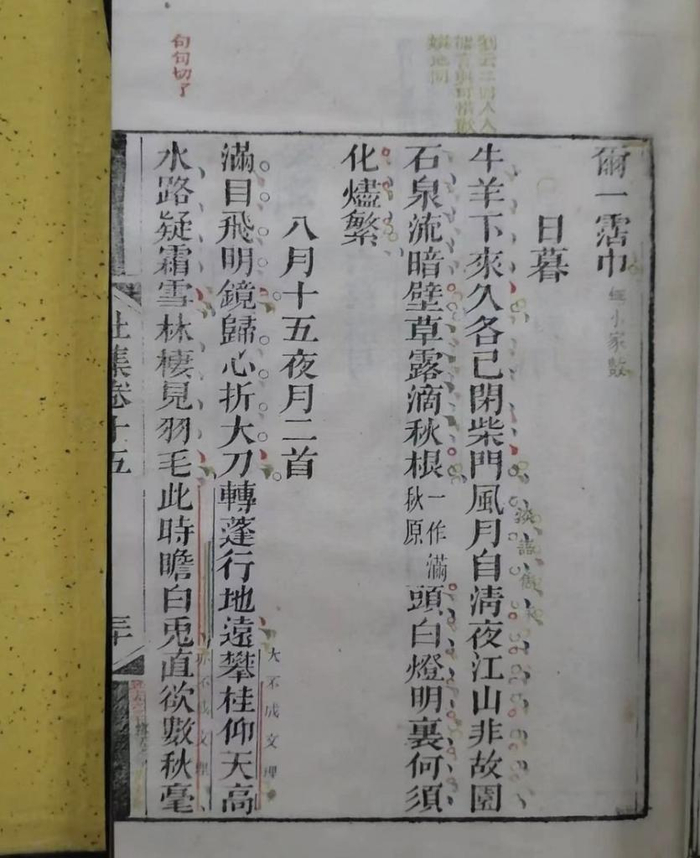 爾一霑巾
小家數
日暮
牛羊下來久各已閉柴門風月自清夜江山非故園
石泉流暗壁草露滴秋根一作滿秋原頭白燈明裏何須
化燼繁
八月十五夜月二首
滿目飛明鏡歸心折大刀轉蓬行地遠攀桂仰天高
大不成文理
水路疑霜雪林棲見羽毛此時瞻白兎直欲數秋毫
亦不成文理
句句切了
杜集卷十五